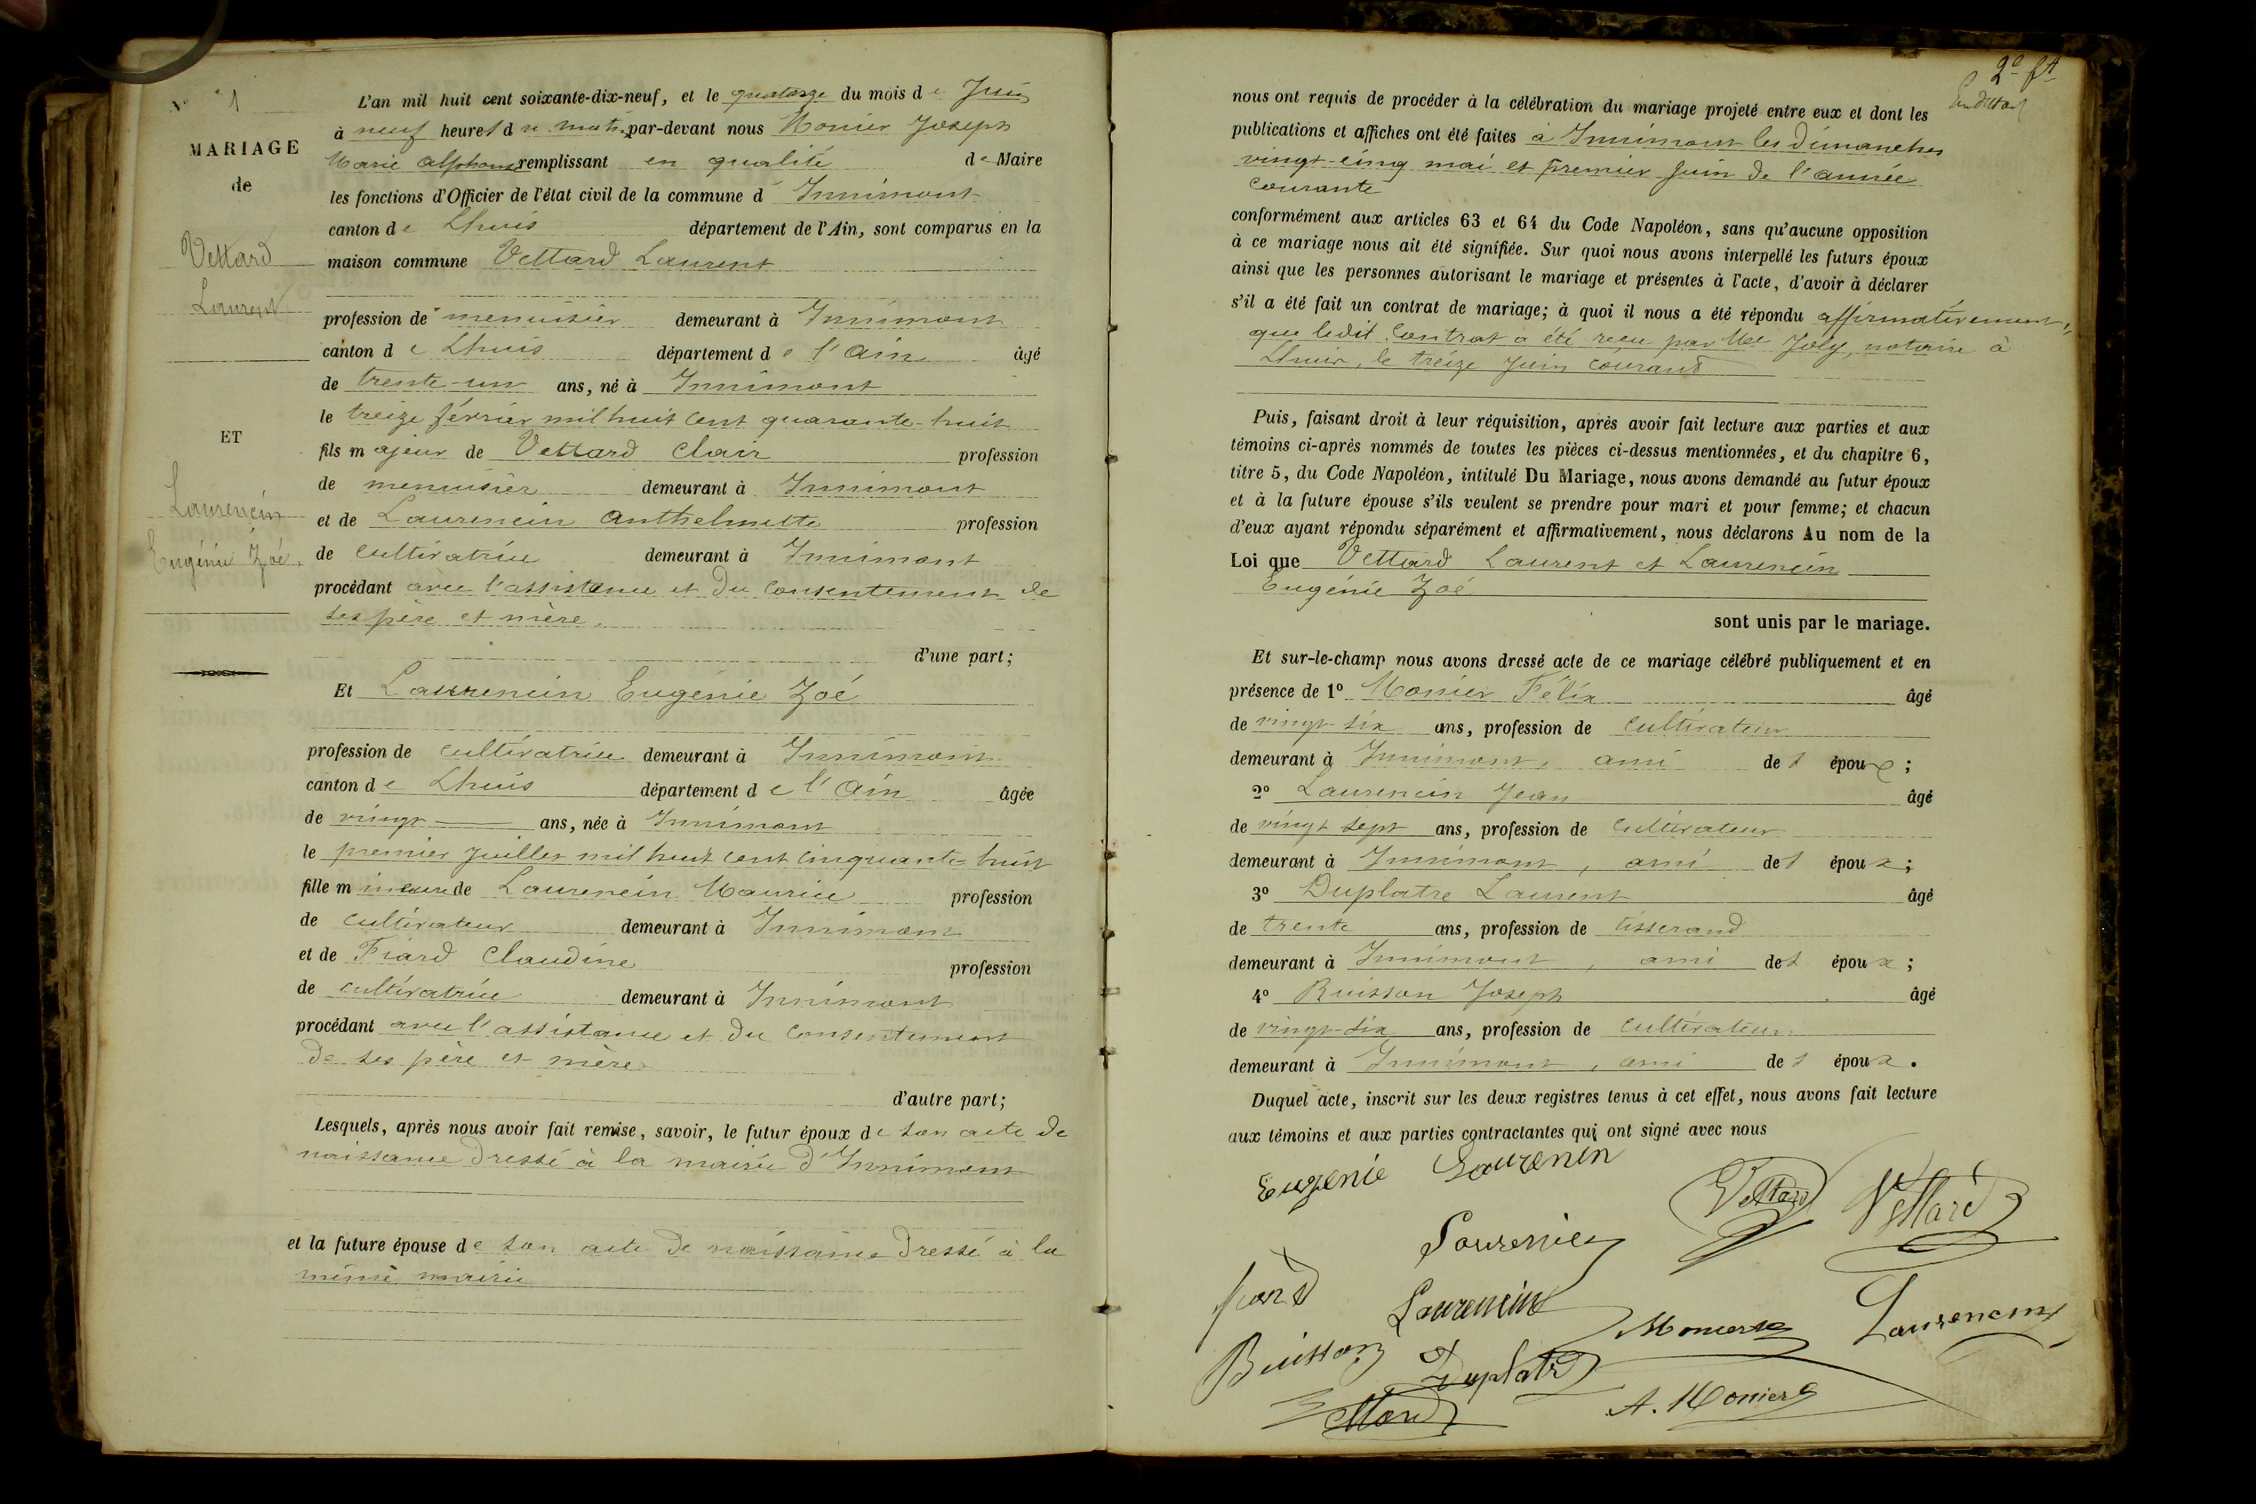 N° 1
MARIAGE
de
Vettard
Laurent
ET
Laurencin
Eugénie Zoé.
L'an mil huit cent soixante-dix-neuf, et le quatorze du mois de Juin
à neuf heures du matin par-devant nous Monier Joseph
Marie Alphonse remplissant en qualité de Maire
les fonctions d'Officier de l'état civil de la commune d'Innimont
canton de Lhuis département de l'Ain, sont comparus en la
maison commune Vettard Laurent
profession de menuisier demeurant à Innimont
canton de Lhuis département de l'Ain âgé
de trente-un ans, né à Innimont
le treize février mil huit cent quarante-huit
fils majeur de Vettard Clair profession
de menuisier demeurant à Innimont
et de Laurencin Anthelmette profession
de cultivatrice demeurant à Innimont
procédant avec l'assistance et du consentement de
ses père et mère.
d'une part;
Et Laurencin Eugénie Zoé
profession de cultivatrice demeurant à Innimont
canton de Lhuis département de l'Ain âgée
de vingt ans, née à Innimont
le premier juillet mil huit cent cinquante-huit
fille mineure de Laurencin Maurice profession
de cultivateur demeurant à Innimont
et de Fiard Claudine profession
de cultivatrice demeurant à Innimont
procédant avec l'assistance et du consentement
de ses père et mère
d'autre part;
Lesquels, après nous avoir fait remise, savoir, le futur époux de son acte de
naissance dressé à la mairie d'Innimont
et la future épouse de son acte de naissance dressé à la
même mairie
2e ft
nous ont requis de procéder à la célébration du mariage projeté entre eux et dont les
publications et affiches ont été faites à Innimont les dimanches
vingt-cinq mai et premier juin de l'année
courante
conformément aux articles 63 et 64 du Code Napoléon, sans qu'aucune opposition
à ce mariage nous ait été signifiée. Sur quoi nous avons interpellé les futurs époux
ainsi que les personnes autorisant le mariage et présentes à l'acte, d'avoir à déclarer
s'il a été fait un contrat de mariage; à quoi il nous a été répondu affirmativement,
que ledit contrat a été reçu par Me Joly, notaire à
Lhuis, le treize juin courant
Puis, faisant droit à leur réquisition, après avoir fait lecture aux parties et aux
témoins ci-après nommés de toutes les pièces ci-dessus mentionnées, et du chapitre 6,
titre 5, du Code Napoléon, intitulé Du Mariage, nous avons demandé au futur époux
et à la future épouse s'ils veulent se prendre pour mari et pour femme; et chacun
d'eux ayant répondu séparément et affirmativement, nous déclarons Au nom de la
Loi que Vettard Laurent et Laurencin
Eugénie Zoé
sont unis par le mariage.
Et sur-le-champ nous avons dressé acte de ce mariage célébré publiquement et en
présence de 1° Monier Félix âgé
de vingt-six ans, profession de cultivateur
demeurant à Innimont, ami des époux;
2° Laurencin Jean âgé
de vingt sept ans, profession de cultivateur
demeurant à Innimont, ami des époux;
3° Duplatre Laurent âgé
de trente ans, profession de tisserand
demeurant à Innimont, ami des époux;
4° Buisson Joseph âgé
de vingt-six ans, profession de cultivateur
demeurant à Innimont, ami des époux.
Duquel acte, inscrit sur les deux registres tenus à cet effet, nous avons fait lecture
aux témoins et aux parties contractantes qui ont signé avec nous
Eugenie Laurencin
Vettard Vettard
Laurencin
fiard Laurencin Monier Laurencin
Buisson Duplatre
Vettard A. Monier